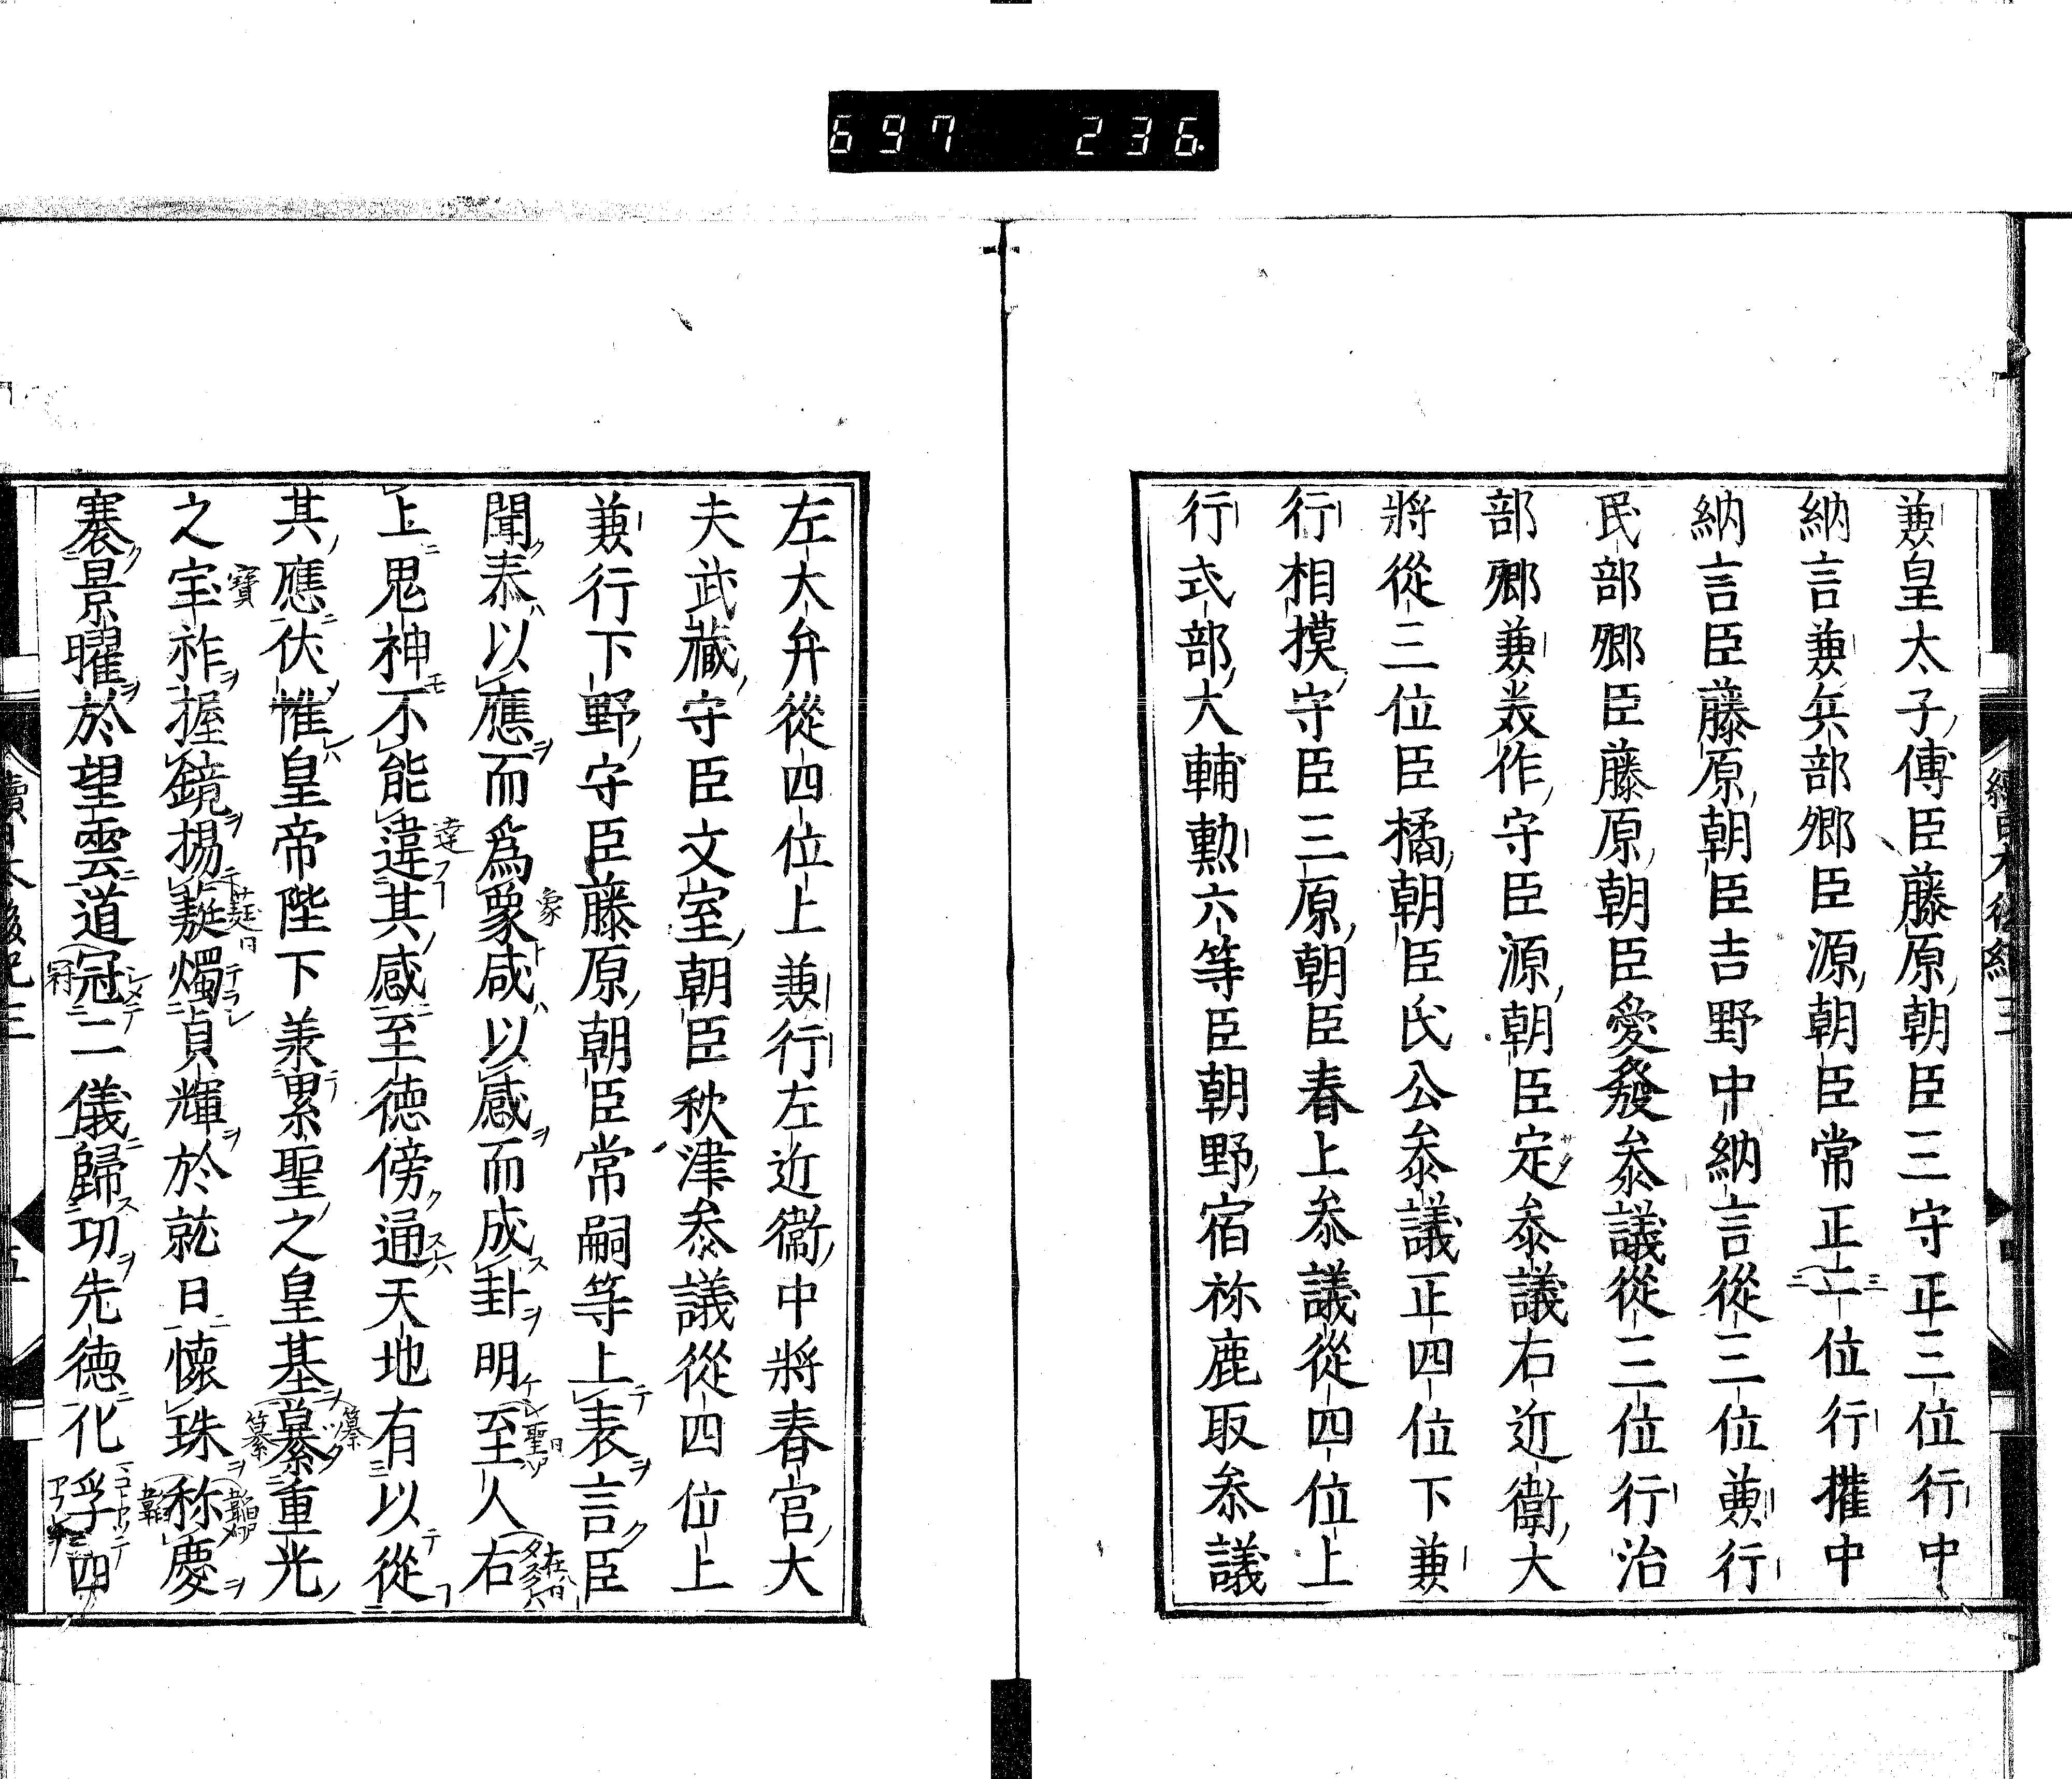 697 236
兼皇太子傅臣藤原朝臣三守正三位行中
納言兼兵部卿臣源朝臣常正二位行權中
納言臣藤原朝臣吉野中納言從三位兼行
民部卿臣藤原朝臣愛發參議從三位行治
部卿兼美作守臣源朝臣定參議右近衞大
將從三位臣橘朝臣氏公參議正四位下兼
行相摸守臣三原朝臣春上參議從四位上
行式部大輔勳六等臣朝野宿祢鹿取參議
左大弁從四位上兼行左近衞中將春宮大
夫武藏守臣文室朝臣秋津參議從四位上
兼行下野守臣藤原朝臣常嗣等上表言臣
聞泰以應而爲象咸以感而成卦明至人右
上鬼神不能違其感至德傍通天地有以從
其應伏惟皇帝陛下羕累聖之皇基纂重光
之宝祚握鏡揚蕤燭貞輝於就日懷珠称慶
褰景曜於望雲道冠二儀歸功先德化孚四